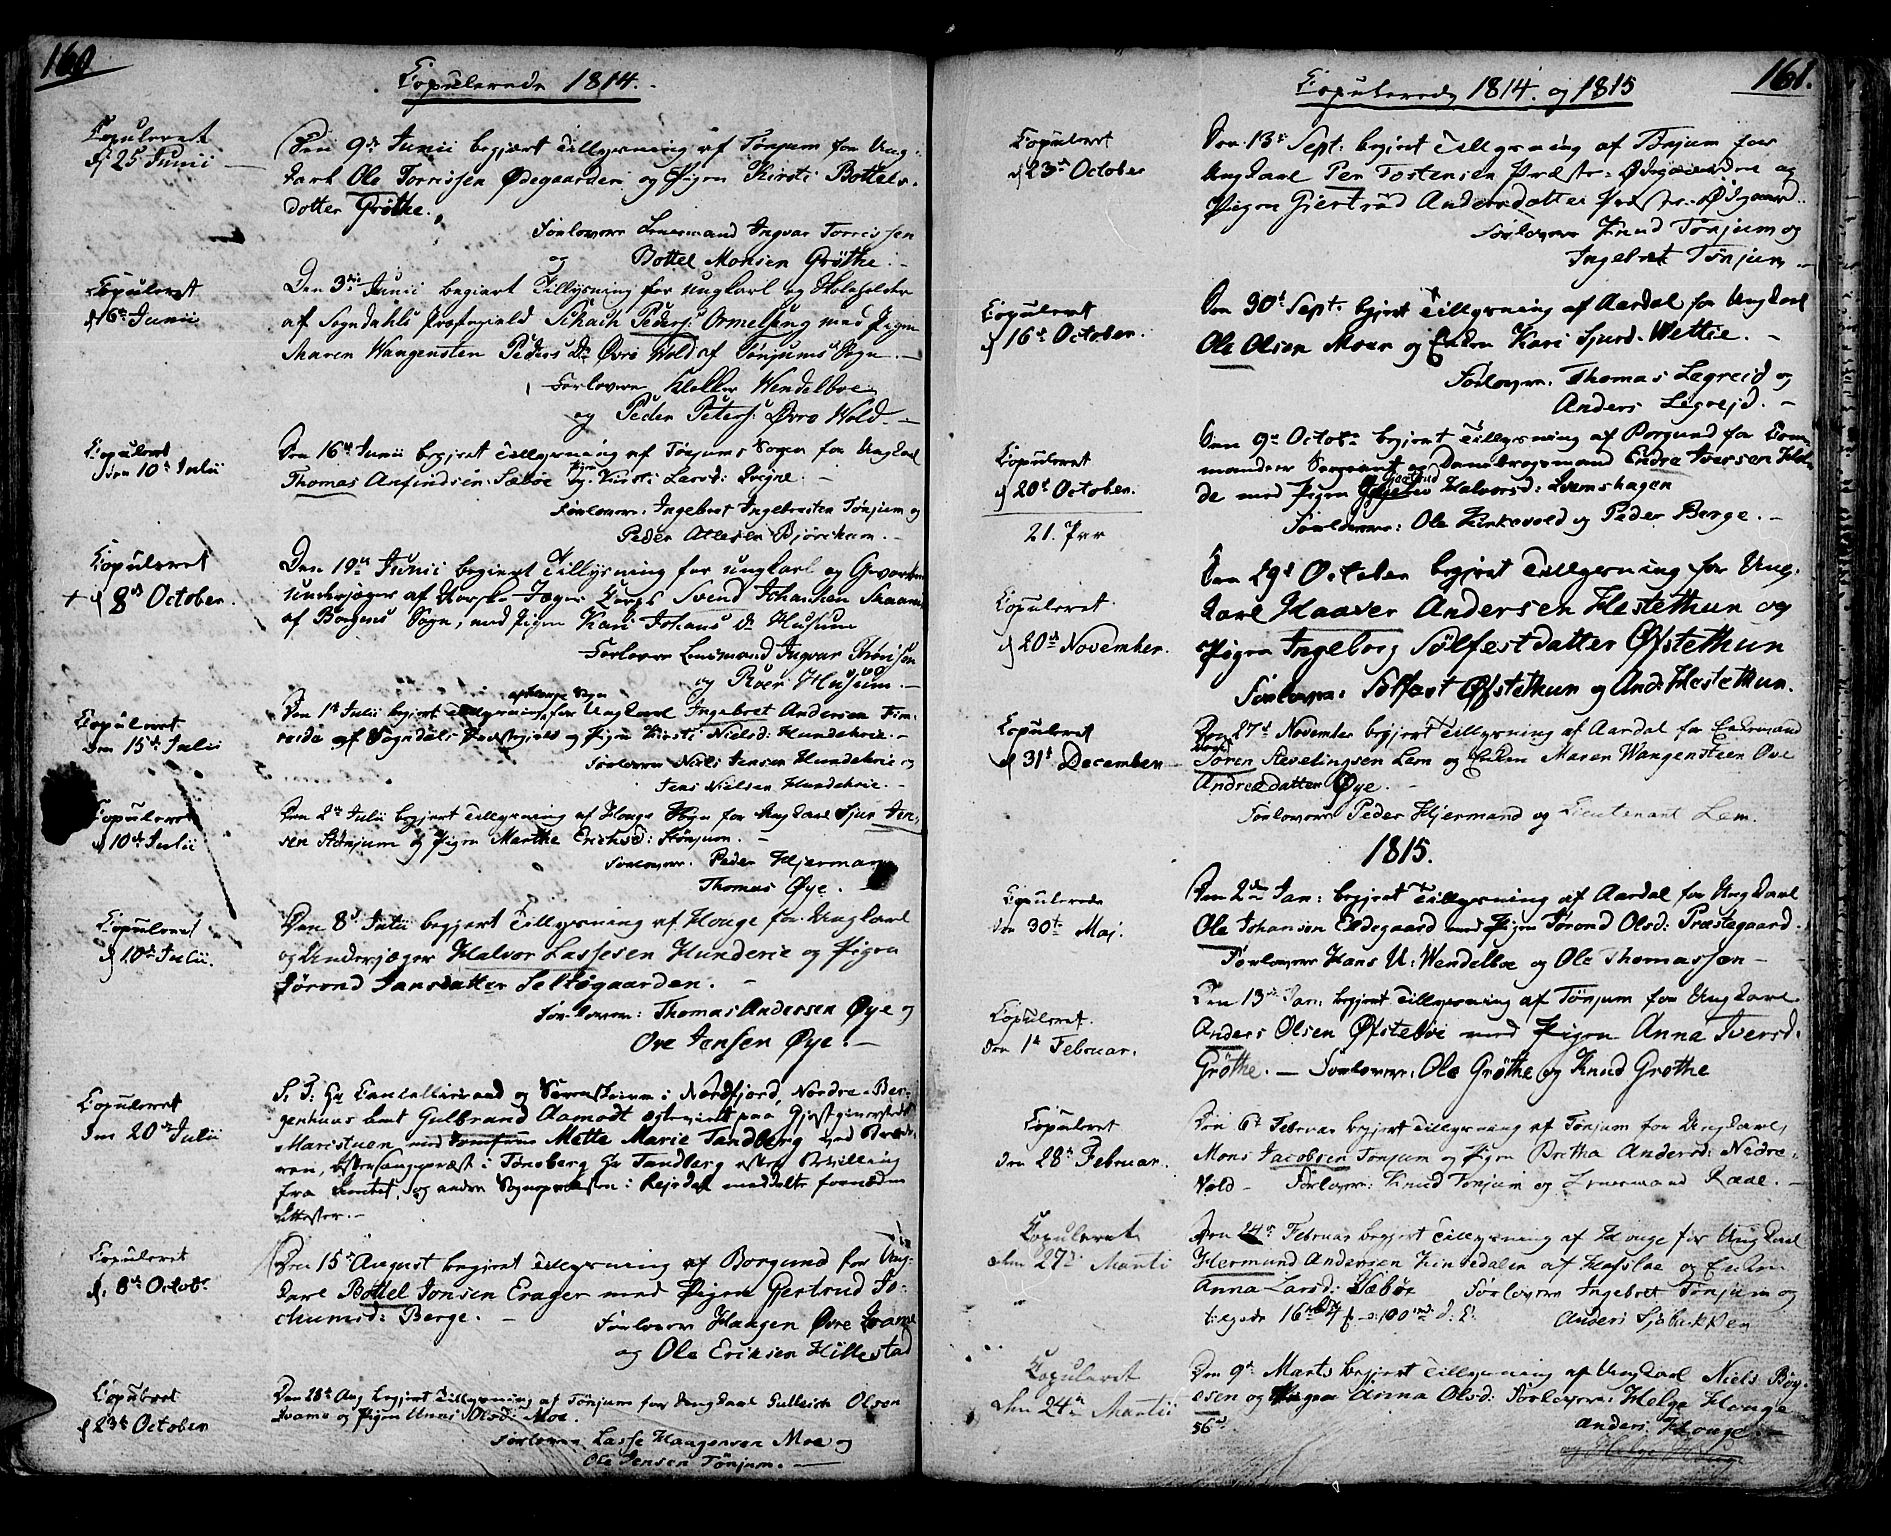 160.
Copulerede 1814.
Copuleret
d 25 Junii
Den 9de Junii begjert Tillysning af Tønjum for Ung-
karl Ole Torrissen Ødegaarden og Pigen Kirsti Bottels-
dotter Grøthe.
Forlovere Lensmand Ingvar Torrissen
og Bottel Monsen Grøthe.
Copuleret
d 6te Junii
Den 3die Junii begiert Tillysning for ungkarl og
af Sogndahls Præstegield Schach Peders: Ormelseng med Pigen
Maren Wangensten Peders Dr Øvre Wold af Tønjums Sogn.
Forlovere Keller Wendelboe
og Peder Peters: Øvre Wold.
Copuleret
den 10de Julii
Den 16de Junii begjert Tillysning af Tønjums Sogn for Ungkarl
Thomas Anfindsen Sæboe og Pigen Kirsti Larsd: Qvigne.
Forlovere: Ingebret Ingebretsen Tønjum og
Peder Atlesen Bjørckum.
Copuleret
+ d 8de October.
Den 19de Junii begiert Tillysning for ungkarl og
underjæger af Norske Jæger Corps Svend Johansen
af Borgens Sogn, med Pigen Kari Johans Dr Husum
Forlovere Lensmand Ingvar
og Roer Husum.
Copuleret
den 15de Julii
Den 1te Julii begjert Tillysning for Ungkarl Ingebret Andersen
af Sogndals Præstegield og Pigen Kirsti Nielsd: Hundekrie.
Forlovere Niels Jensen Hundekrie og
Jens Nielsen Hundekrie.
Copuleret
d 10de Julii
Den 2den Julii begjert Tillysning af Houge Sogn for Ungkarl Sjur
sen Tønjum og Pigen Marthe Erichsd: Tønjum.
Forlovere: Peder Hjermand
Thomas Øye.
Copuleret
d 10de Julii.
Den 8de Julii begjert Tillysning af Houge for Ungkarl
og Underjæger Halvor Lassesen Hunderie og Pigen
Jørond Jansdatter Seltøgaarden.
Forlovere: Thomas Andersen Øye og
Ove Jensen Øye.
Copuleret
den 20de Julii
S. T: Hr Cancelliraad og Sorenskriver i Nordfjord, Nordre-Ber-
genhuus Amt Gulbrand Aamodt ægteviet paa Gjestgiverstedet
Maristuen med Jomfrue Mette Marie Tandberg
i Tønsberg Hr Tandberg efter Bevilling
fra
Copuleret
d. 8de Octobr.
Den 15de August begjert Tillysning af Borgund for Ung-
karl Bottel Jonsen Erager med Pigen Gertrud Jo-
chumsd: Berge.
Forlovere Haagen Øvre Qvame
og Ole Eriksen Hillestad
Copuleret
d 23de October
Den 28de Aug begjert Tillysning af Tønjum for Ungkarl Olsen
Qvame og Pigen Unni Olsd: Moe.
Forlovere Lasse Haagensen Moe og
Ole Jensen Tønjum.
161.
Copulerede 1814. og 1815
Copuleret
d 23de October
Den 13de Sept: begjert Tillysning af Tønjum for
Ungkarl Per Tostensen Præste-Ødegaardene og
Pigen Giertrud Andersdatter Præste-Ødegaard.
Forlovere Knud Tønjum og
Ingebret Tønjum
Copuleret
d 16de October.
Den 30te Sept: begjert Tillysning af Aardal for Ungkarl
Ole Olsen Moen og Enken Kari Sjurd: Wettie.
Forlovere: Thomas Legreid og
Anders Legrejd.
Copuleret
d 20de October.
21. Par
Den 9de Octobr begjert Tillysning af Borgund for Com-
mandeer Sergeant og Danebrogsmand Endre Iversen
de med Pigen Halvorsd: Qvamshagen
Forlovere: Ole Kirkevold og Peder Berge.
Copuleret
d 20de November.
Den 29de October begjert Tillysning for Ung-
karl Haaver Andersen Hestethun og
Pigen Ingeborg Sølfestdatter Øfstethun
Forlovere: Sølfæst Øfstethun og And: Hestethun.
Copuleret
d 31te December
Den 27de November begjert Tillysning af Aardal for Enkemand
Søren Stevelingsen Lem og Enken Maren Wangensteen Ove
Andreædatter Øye.
Forlovere Peder Hjermand og Lieutenant Lem.
1815.
Copulerede
den 30te Maj.
Den 2den Jan: begjert Tillysning af Aardal for Ungkarl
Ole Johansen Eldegaard med Pigen Jørond Olsd: Præstegaard.
Forlovere Hans U: Wendelboe og Ole Thomassen
Copuleret.
den 1te Februar.
Den 13de Jan: begjert Tillysning af Tønjum for Ungkarl
Anders Olsen Øfsteboe med Pigen Anna Iversd:
Grøthe. — Forlovere: Ole Grøthe og Knud Grøthe
Copuleret
den 28de Februar.
Den 6te Februar begjert Tillysning af Tønjum for Ungkarl
Mons Jacobsen Tønjum og Pigen Britha Andersd: Nedre
Vold — Forlovere: Knud Tønjum og Lensmand Raae.
Copuleret
den 27de Martii
Den 24de Februar begjert Tillysning af Houge for Ungkarl
Hermund Andersen Kinsedalen af Hafsloe og Enken
Anna Larsd: Sæbøe Forlovere Ingebret Tønjum og
Anders
Copuleret
den 24de Martii
Den 9de Marts begjert Tillysning af Ungkarl Niels Boy-
esen og Pigen Anna Olsd: Forlovere: Helge Houge
56
Anders Houge.
og Helge Houge